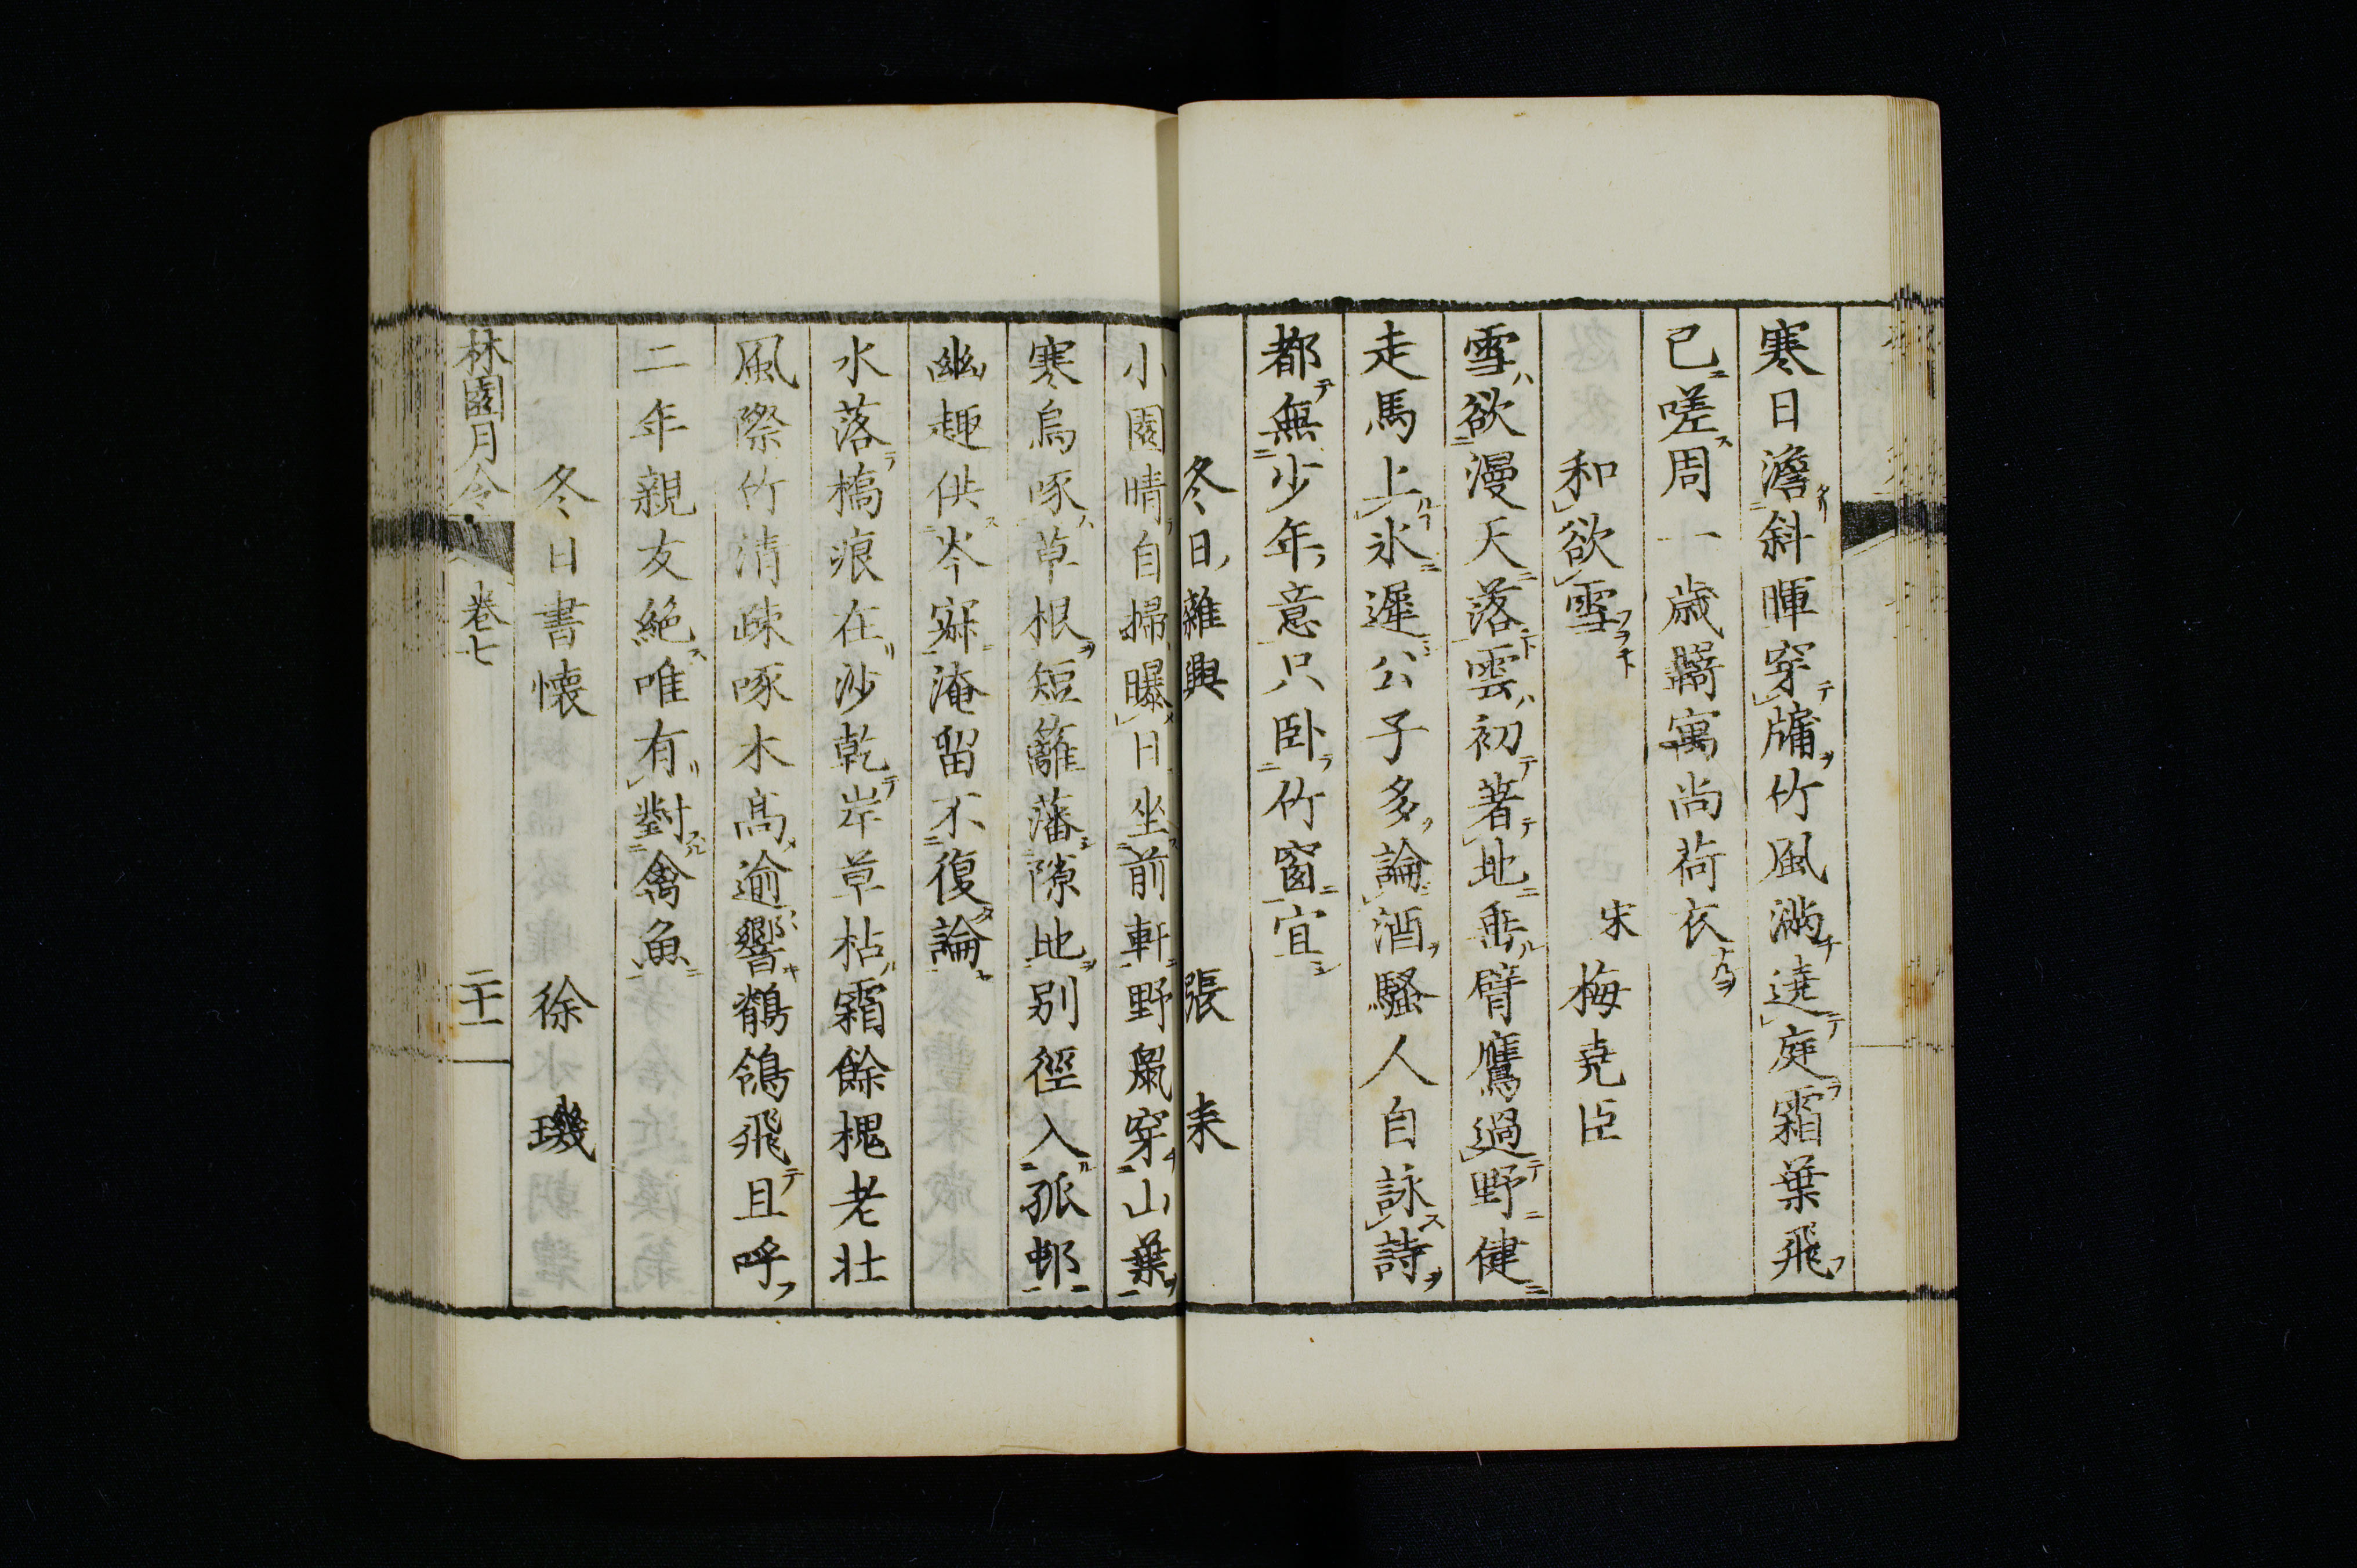 寒日澹斜暉穿牗竹風滿遶庭霜葉飛
已嗟周一歲羈寓尚荷衣
和欲雪　宋　梅堯臣
雪欲漫天落雲初著地垂臂鷹過野健
走馬上氷遲公子多論酒騷人自詠詩
都無少年意只卧竹窗宜
冬日雜興　張耒
小園晴自掃曝日坐前軒野鼠穿山葉
寒烏啄草根短籬藩隙地別徑入孤邨
幽趣供岑寂淹留不復論
水落橋痕在沙乾岸草枯霜餘槐老壯
風際竹清疎啄木高逾響鶺鴒飛且呼
二年親友絕唯有對禽魚
冬日書懷　徐璣
林園月令　卷七　二十一